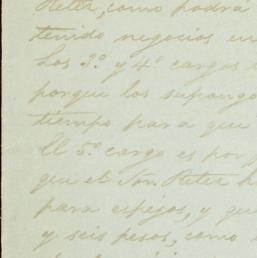 Reter, como podrá
tenido negocios en
Los 3º. y 4º. cargos
porque los supongo
tiempo para que
El 5º. cargo es por
que el Sor. Reter h
para espejos, y que
y seis pesos, como